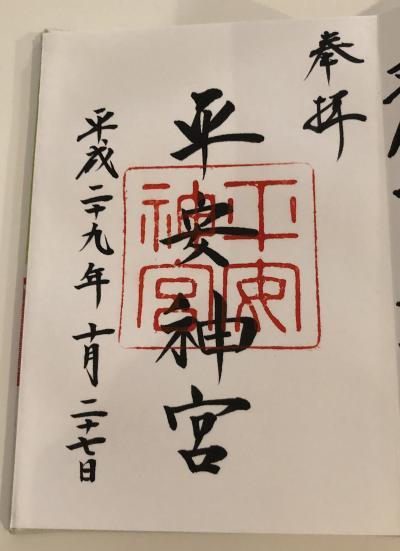 奉拝
平安神宮
平安神宮
平成二十九年十月二十七日